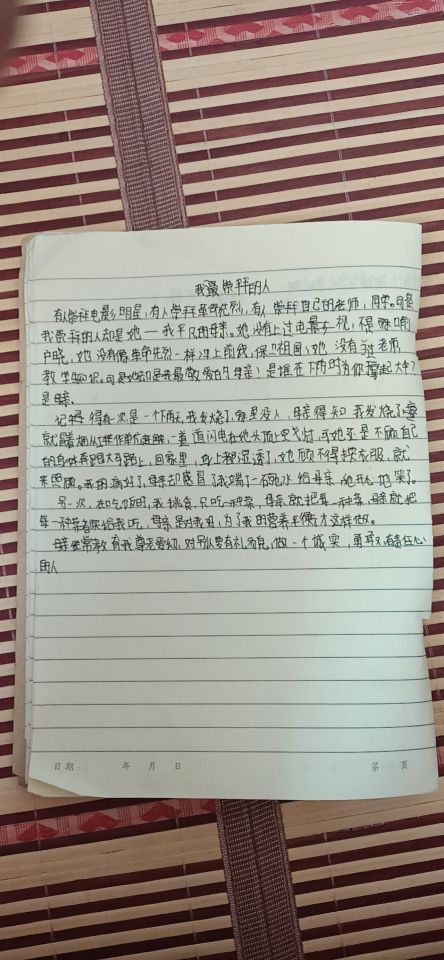 我最崇拜的人
有人崇拜电影明星,有人崇拜革命先烈,有人崇拜自己的老师,同学。可是
我崇拜的人却是她一我平凡的母亲。她没有上过电视,不是家喻
户晓,她没有像革命先烈一样冲上前线,保卫祖国,她没有老师
教学知识。可是她却是我最敬爱的母亲!是谁在下雨时为你撑起大伞?
是母亲。
记得有一次是一个雨天,我发烧了,家里没人,母亲得知我发烧了
就从工作单位赶,一道道闪电在她头顶上,可她还是不顾自己
的身体奔跑在马路上,回家里,身上都湿透了,她顾不得换衣服,就
来照顾。我的病好了,母亲却感冒了我端了一碗水给母亲,她开心地笑了。
另一次,在吃饭时,我挑食,只吃一种菜,母亲就把每一种菜,母亲就把
每一种菜都给我吃,母亲是对我好,为了我的营养才这样做。
母亲常教育我尊老爱幼,对别人要有礼貌,做一个诚实,勇敢,有责任心
的人
日期: 年 月 日 第 页